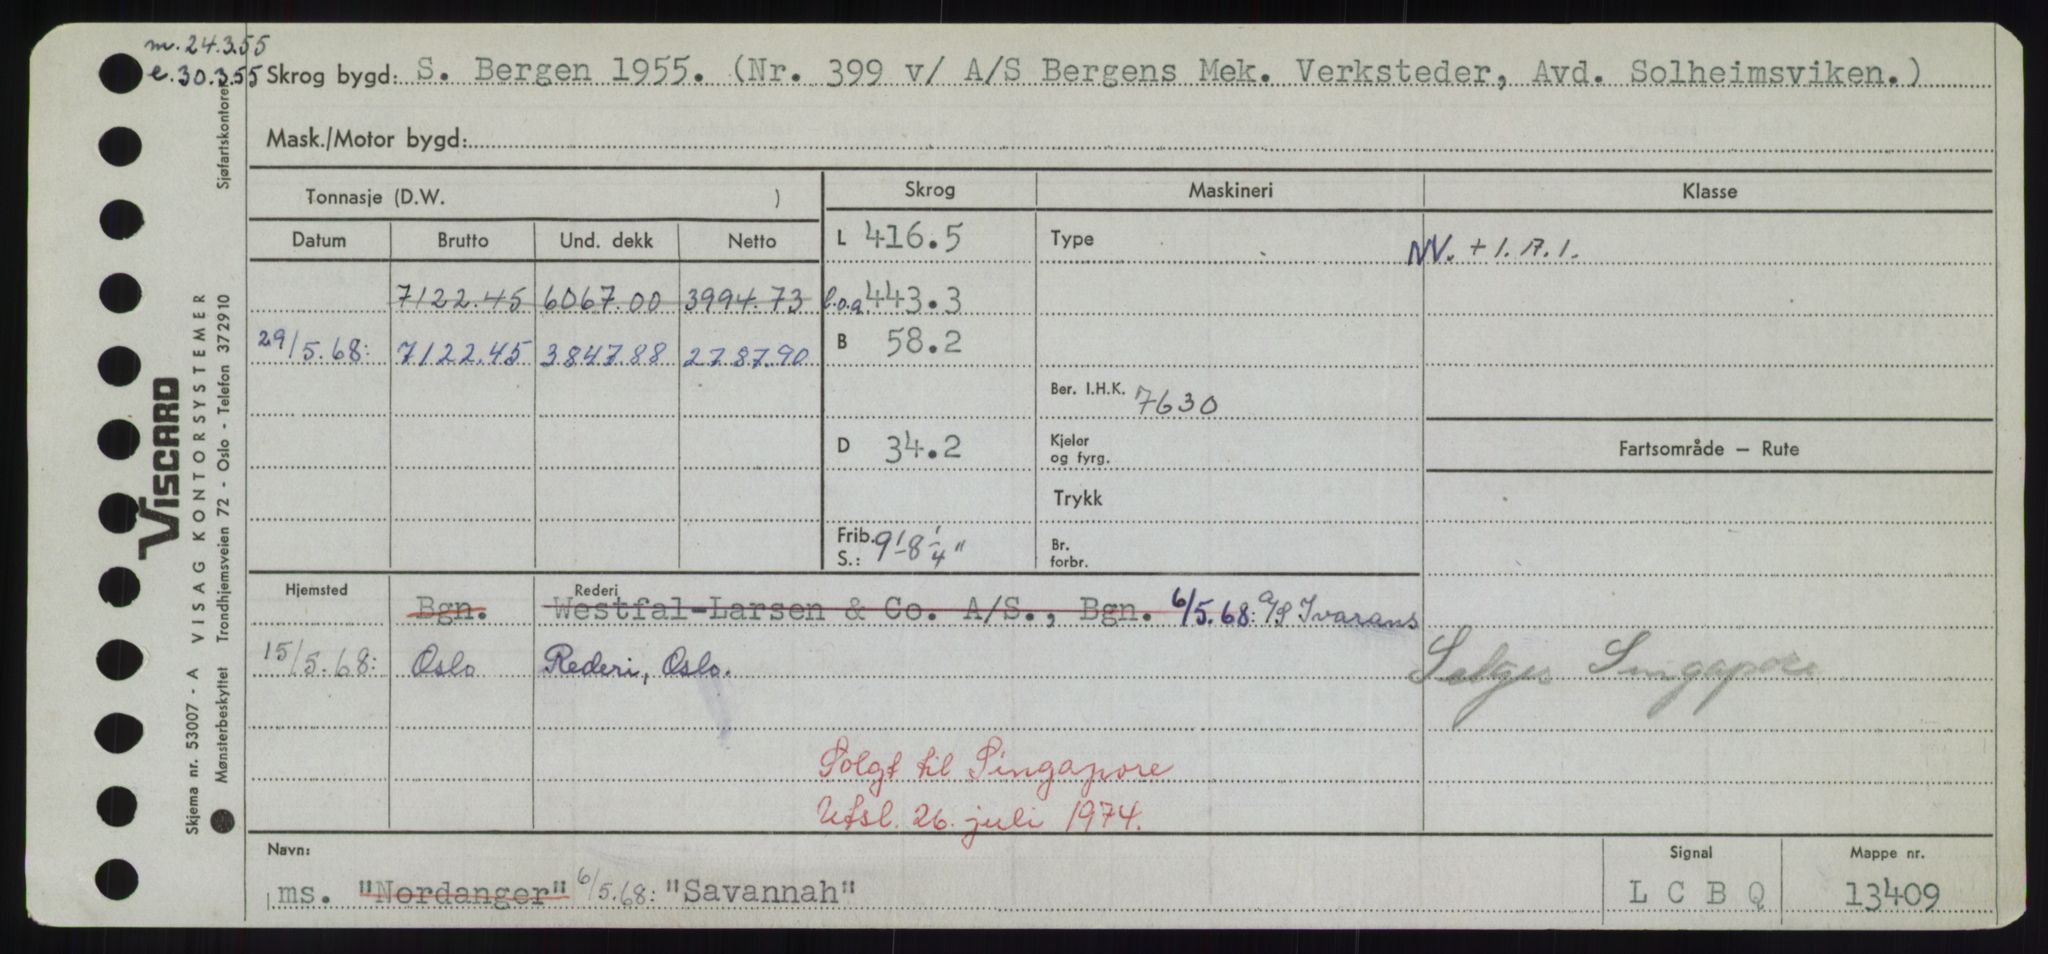 m. 24.3.55
e. 30.3.55 Skrog bygd: S. Bergen 1955. (Nr. 399 v/ A/S Bergens Mek. Verksteder, Avd. Solheimsviken.)
Mask./Motor bygd:
Tonnasje (D.W. ) Skrog Maskineri Klasse
Datum Brutto Und. dekk Netto L 416.5 Type NV. + 1. A. 1.
7122.45 6067.00 3994.73 l.o.a. 443.3
29/5.68: 7122.45 3847.88 2787.90 B 58.2
Ber. I.H.K. 7630
D 34.2 Kjeler og fyrg. Fartsområde — Rute
Trykk
Frib. S.: 9'-8 1/4" Br. forbr.
Hjemsted Rederi
Bgn. Westfal-Larsen & Co. A/S., Bgn. 6/5.68: A/S Ivarans
15/5.68: Oslo Rederi, Oslo. Selges Singapore
Solgt til Singapore
Utsl. 26. juli 1974.
Navn: Signal Mappe nr.
ms. "Nordanger" 6/5.68: "Savannah" L C B Q 13409
VISCARD
VISAG KONTORSYSTEMER
Skjema nr. 53007 - A
Mønsterbeskyttet Trondhjemsveien 72 - Oslo - Telefon 372910
Sjøfartskontoret